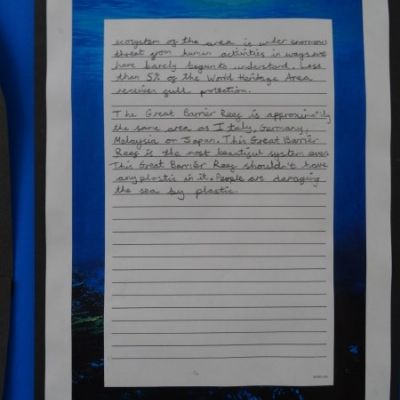 ecosystem of the area is under enormous
threat from human activities in ways we
have barely begun to understand. Less
than 5% of the World Heritage Area
receives full protection.
The Great Barrier Reef is approximately
the same area as Italy, Germany,
Malaysia or Japan. This Great Barrier
Reef is the most beautiful system ever.
This Great Barrier Reef shouldn't have
any plastic in it. People are damaging
the sea by plastic.